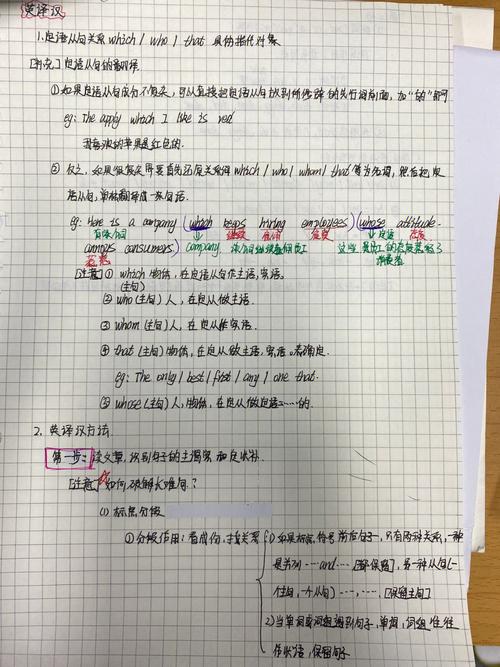 英译汉
1.定语从句关系 which / who / that 具体指代对象
[补充] 定语从句的翻译.
①如果定语从句成分不复杂, 可以直接把定语从句放到所修饰的先行词前面, 加"的"即可
eg: The apply which I like is red
我喜欢的苹果是红色的.
② 反之, 如果很复杂 which / who / whom / that
定语从句, 单独翻译成一个句子.
eg: Here is a company (which keeps hiring employees) (whose attitude
有一个公司 继续 雇佣 员工 定语 态度
annoys consumers) company. 该公司继续雇佣员工 这些员工的态度惹怒了
惹怒 消费者
[注意] ① which 物体, 在定语从句作主语, 宾语.
(主句)
② who (主句) 人, 在定从做主语.
③ whom (主句) 人, 在定从作宾语.
④ that (主句) 物体, 在定从做主语, 宾语。
eg: The only / best / first / any / one that.
⑤ whose (主句) 人, 物体, 在定从做定语……的.
2. 英译汉方法.
第一步: 读文章, 识别句子的主谓宾 和定状补.
[注意] 如何破解长难句?
(1) 标点分级
①分级作用: 看成分, 找关系
1) 如果标点符号前后句子一, 只有两种关系, 一种
是并列 …and… [都保留], 另一种从句(一
个主句, 一个从句) …, …. [保留主句]
2) 当单词或词组遇到句子, 单词, 词组往往
作状语, 保留句子